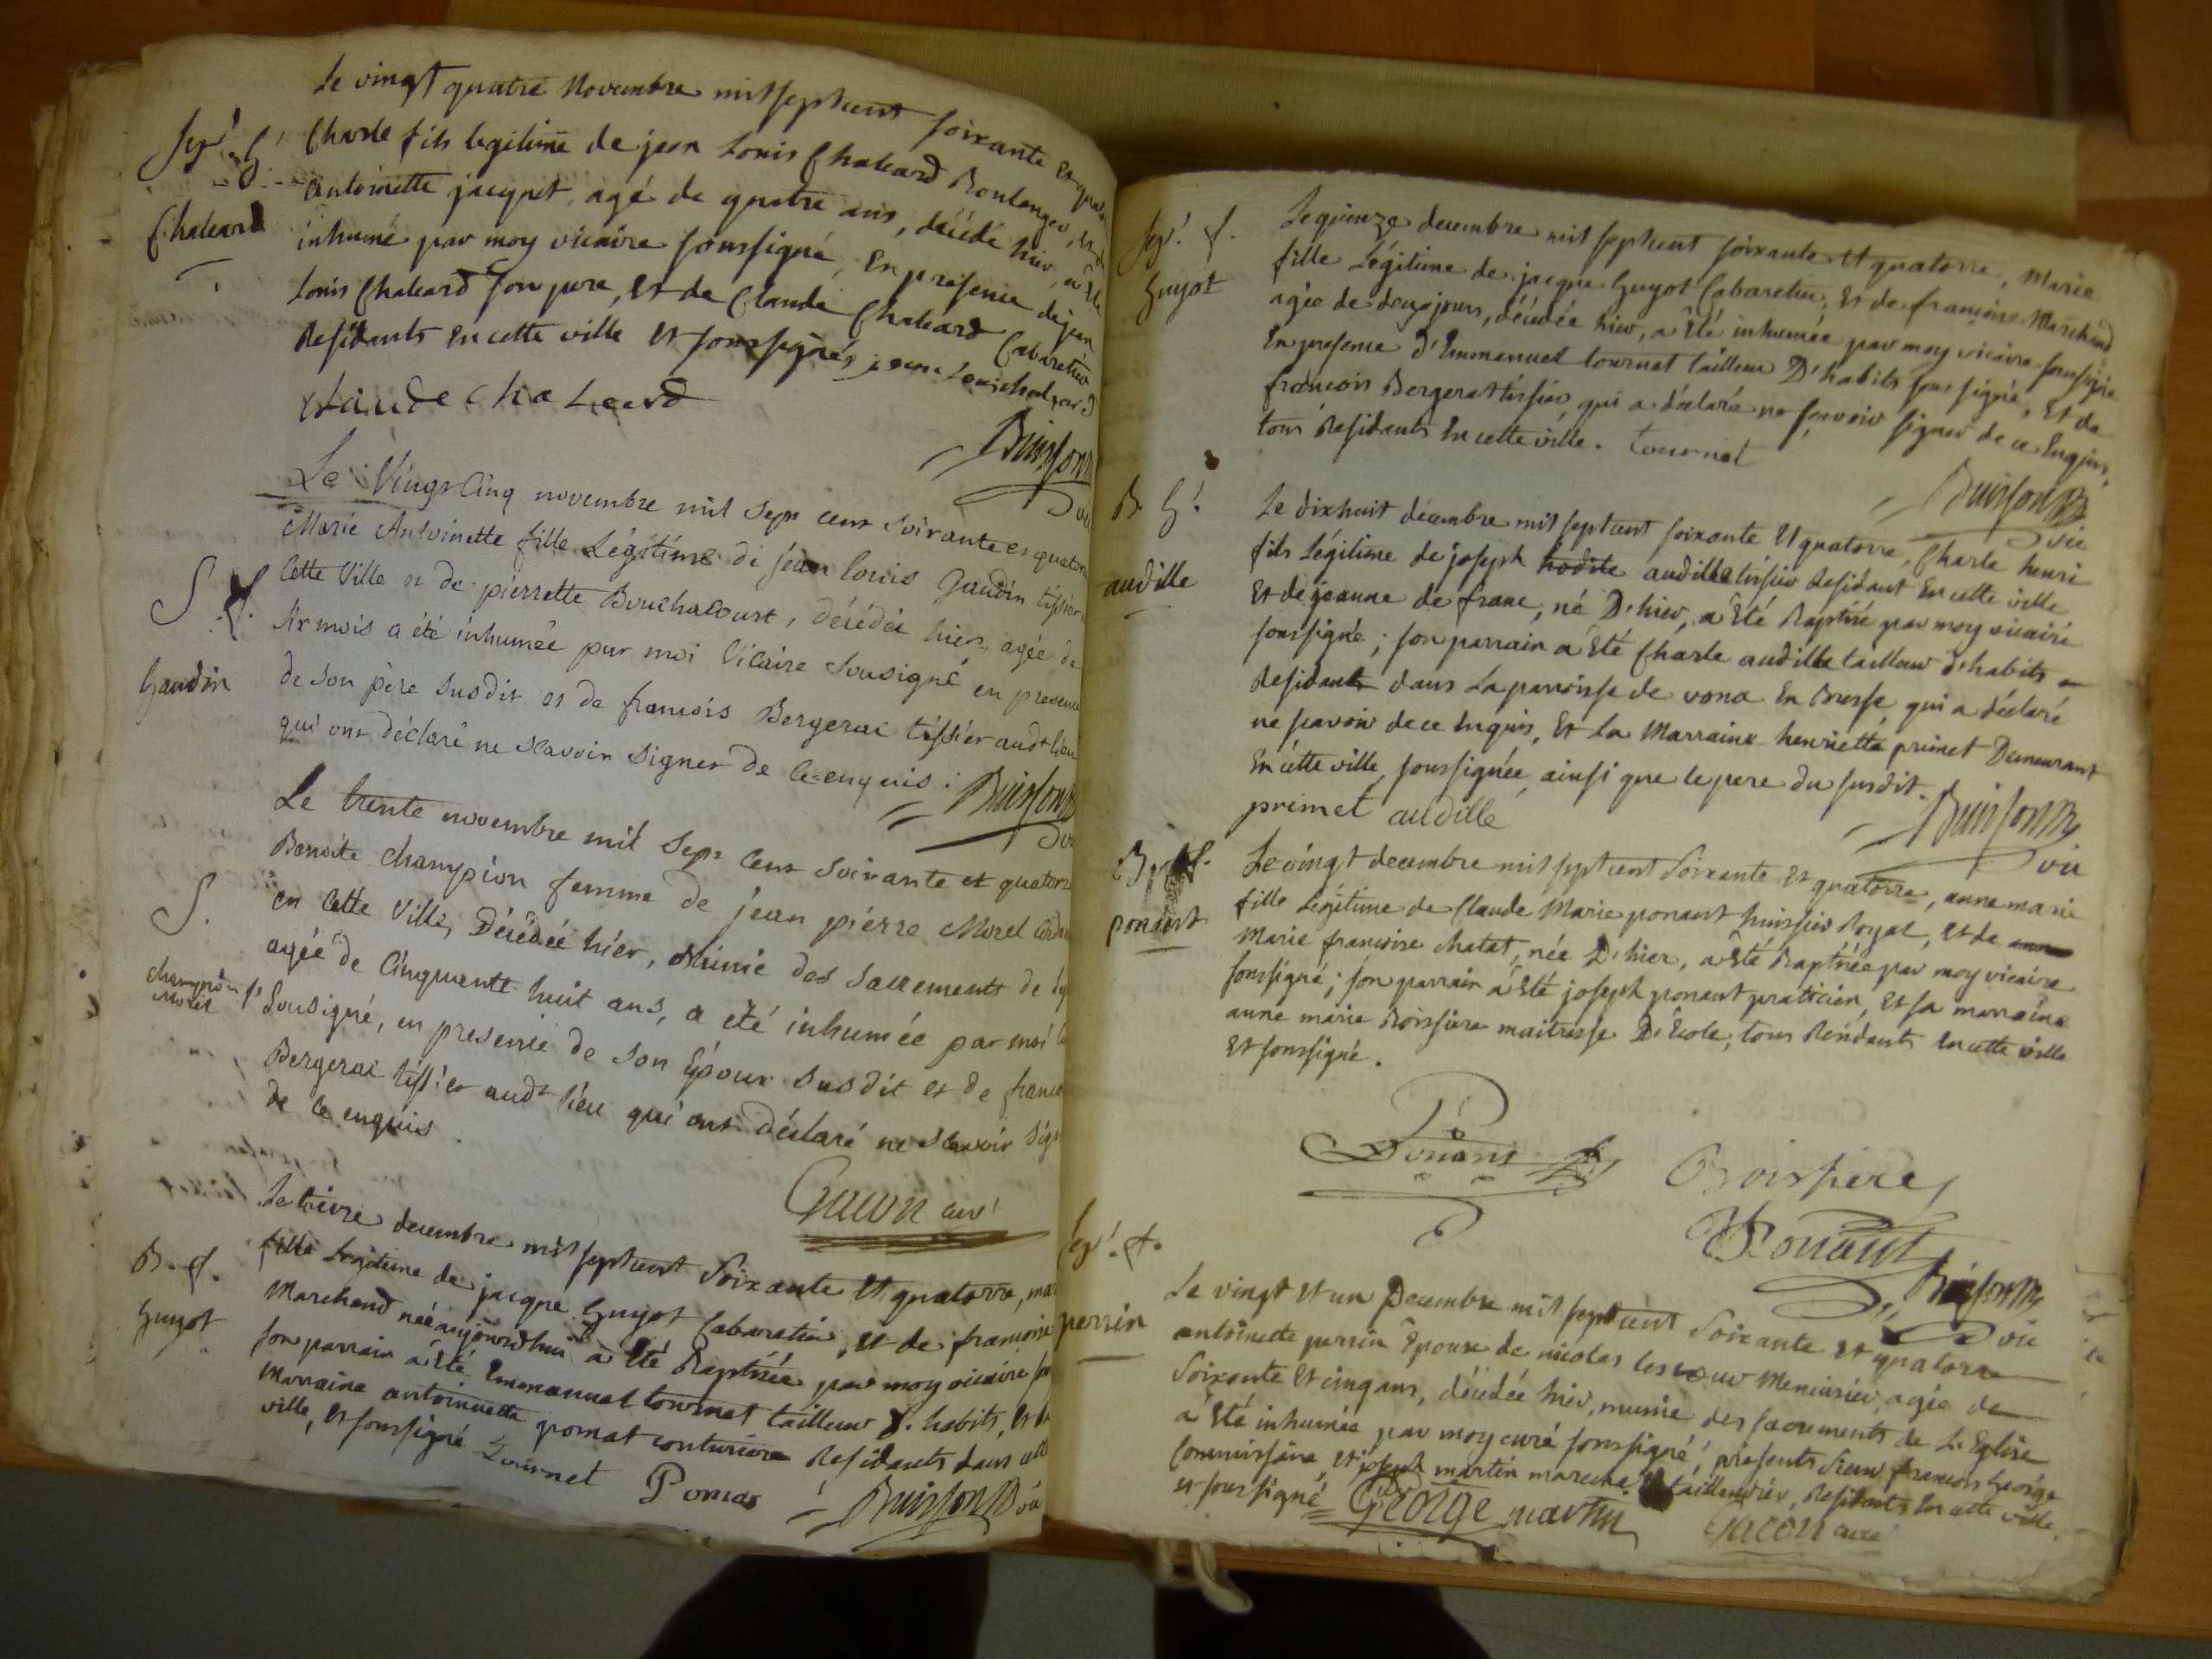 Le vingt quatre Novembre mil sept cent soixante et quator
Charle fils legitime de jean Louis Chaleard Boulanger, et d
antoinette jacquet, agé de quatre ans, décédé hier, a Eté
inhumé par moy vicaire soussigné, En presence de jean
Louis Chaleard son pere, Et de Claude Chaleard Cabaretier
Residants En cette ville Et soussignés jean Louis chaleard
claude chaleard
Buisson
vic
Sep.e G.
Chaleard
Le Vingt Cinq novembre mil sept cent soixante et quatorz
Marie Antoinette fille Légitime de jéan louis gaudin tissier
Cette Ville et de pierrette Bouchacourt, décédée hier, agée de
six mois a été inhumée par moi Vicaire sousigné en presence
de son père susdit et de francois Bergerac tissier audt lieu
qui ont déclaré ne scavoir signer de ce enquis. Buisson
vic
S. f.
Gaudin
Le trente novembre mil sept cent soixante et quatorz
Benoite champion femme de jean pierre Morel
en cette Ville, Décédée hier, Munie des sacrements de
agée de cinquante huit ans, a été inhumée par moi
sousigné, en presence de son Epoux susdit et de franco
Bergerac tissier audt lieu qui ont déclaré ne scavoir sign
de ce enquis.
Gacon curé
S.
champion f.
Morel
Le treize decembre mil sept cent Soixante Et quatorze, mar
fille Legitime de jacque Guyot Cabaretier, et de francoise
Marchand née aujourdhui a Eté Baptisée par moy vicaire sou
son parrain a Eté Emmanuel tournat tailleur d'habits, Et la
Marraine antoinette pomat couturiere Residants dans cette
ville, Et soussigné Tournat Pomat Buisson vic
B. f.
Guyot
Le quinze decembre mil sept cent soixante Et quatorze, Marie
fille Légitime de jacque Guyot Cabaretier, Et de françoise Marchand
agée de deux jours, décédée hier, a Eté inhumée par moy vicaire soussigné
En presence d'Emmanuel tournat tailleur D'habits soussigné, Et de
francois Bergerat tissier, qui a déclaré ne sçavoir signer de ce Enquis,
tous Residants En cette ville. Tournat
Buisson
vic
Sep.e f.
Guyot
Le dixhuit décembre mil sept cent soixante Et quatorze, Charle henri
fils Légitime de joseph audille tissier Residant En cette ville
Et de jeanne de franc, né D'hier, a Eté Baptisé par moy vicaire
soussigné; son parrain a Eté Charle audille tailleur d'habits
Residant dans La parroisse de vona En Bresse qui a déclaré
ne sçavoir de ce Enquis, Et La Marraine henriette primet Demeurant
En cette ville, soussignée, ainsi que le pere du susdit.
primet audille
Buisson
vic
B. G.
audille
Le vingt decembre mil sept cent Soixante et quatorze, anne marie
fille Légitime de Claude Marie ponant huissier Royal, et de
Marie francoise chatat, née D'hier, a Eté Baptisée par moy vicaire
soussigné; son parrain a Eté joseph ponant praticien, Et sa marraine
anne marie Boissiere maitresse D'Ecole, tous Residants En cette ville
Et soussigné.
Ponant Boissiere
Ponant
Buisson
vic
ponant
Le vingt et un Decembre mil sept cent Soixante et quatorze
antoinette perrin Epouse de nicolas Menuisier, agée de
Soixante Et cinq ans, décédée hier, munie des sacrements de L'Eglise
a Eté inhumée par moy curé soussigné, présents Sieur francois George
Commissaire, et joseph martin taillandier, Residants En cette ville
et soussigné George martin Gacon curé
Sep.e f.
perrin